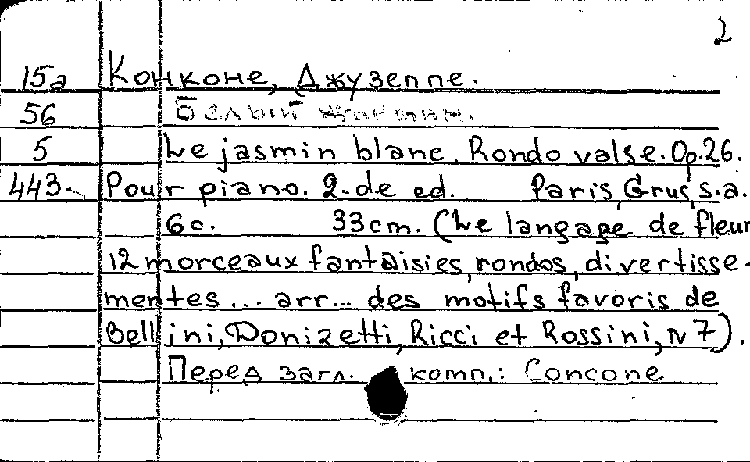 2
15а Конконе, Джузеппе.
56 Белый жасмин.
5 Le jasmin blanc. Rondo valse. Op. 26.
443- Pour piano. 2-de ed. Paris, Grus, s.a.
6с. 33cm. (Le langage de fleur
12 morceaux fantaisies, rondos, divertisse-
mentes... arr... des motifs favoris de
Bellini, Donizetti, Ricci et Rossini, N 7).
Перед загл. комп.: Concone